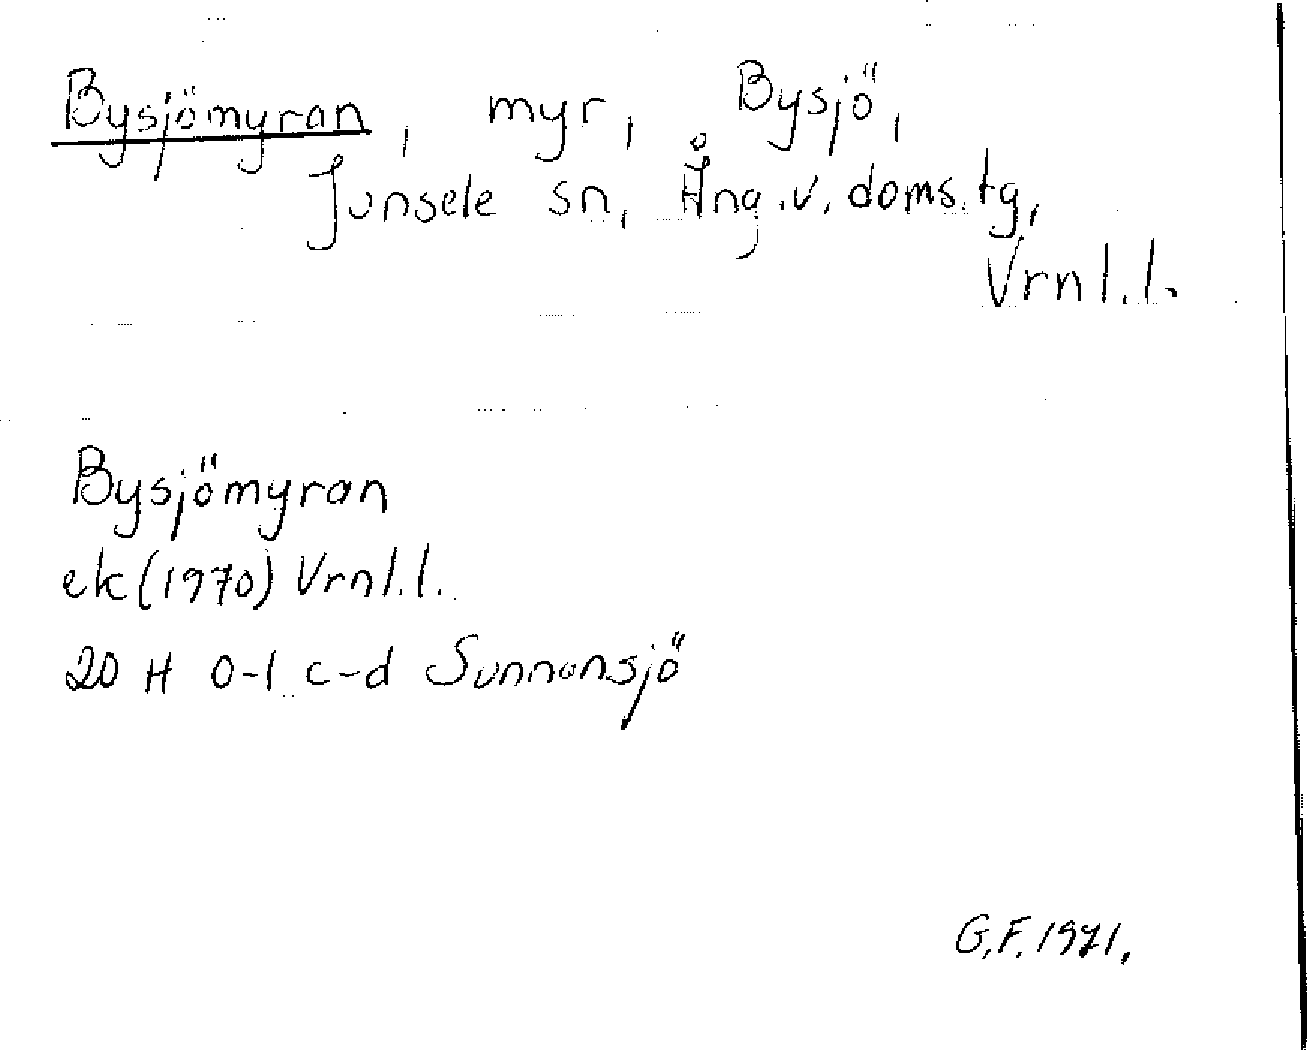 Bysjömyran, myr, Bysjö,
Junsele sn, Ång.v. doms.tg,
Vrnl.l.
Bysjömyran
ek (1970) Vrnl.l.
20 H 0-1 c-d Sunnansjö
G.F. 1971.